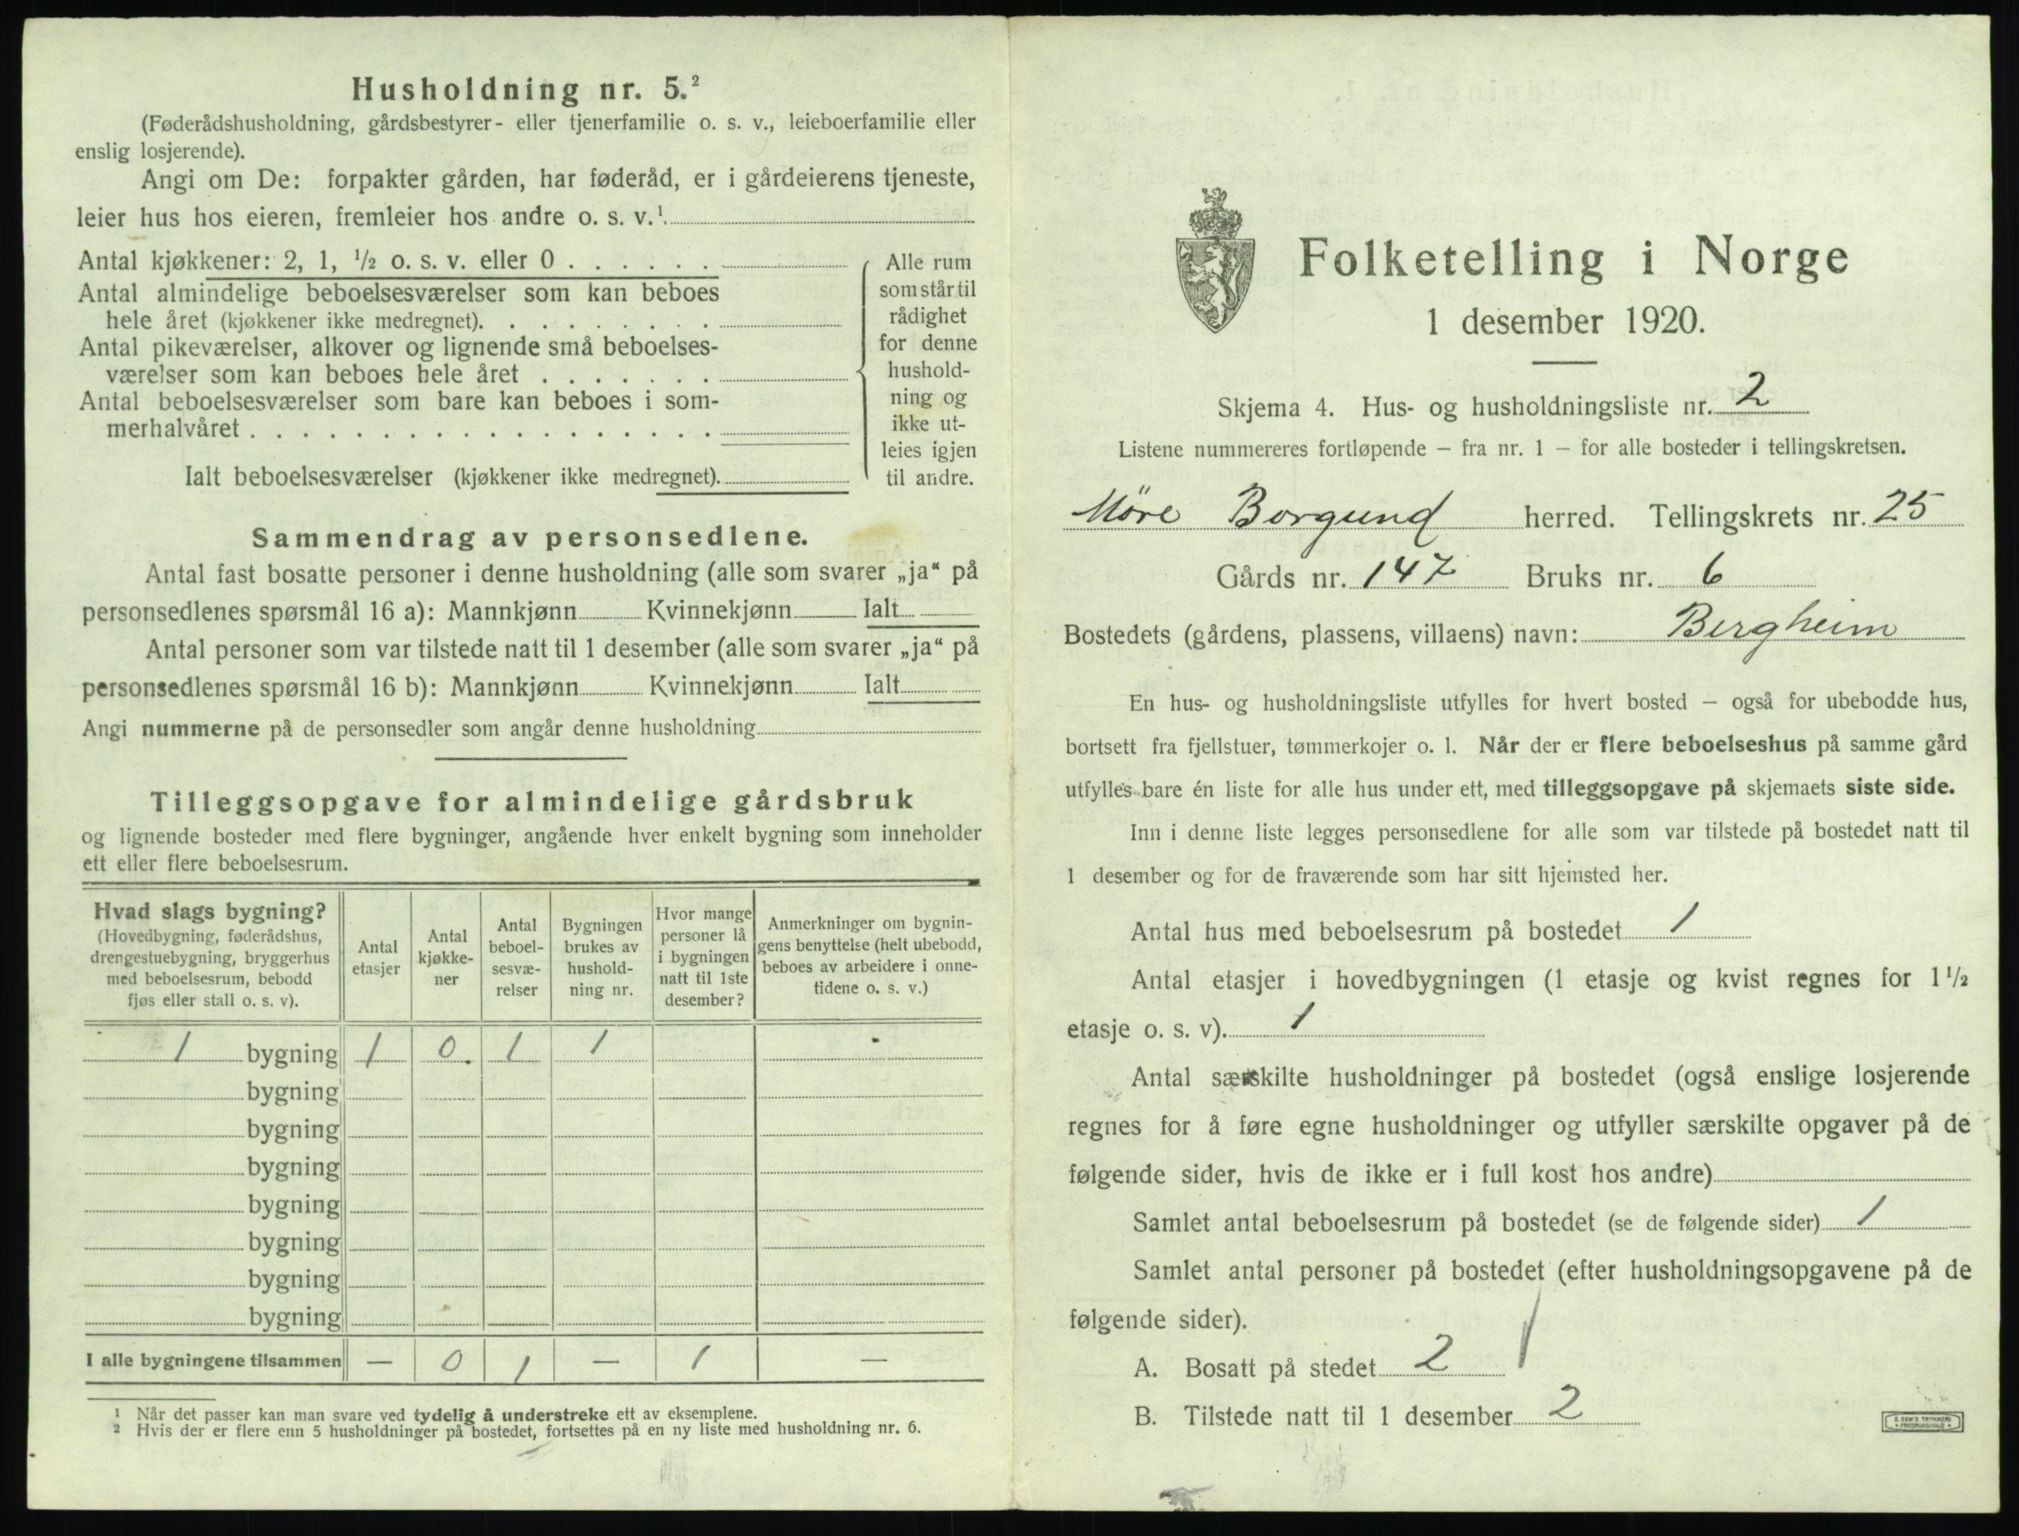 Husholdning nr. 5.²
(Føderådshusholdning, gårdsbestyrer- eller tjenerfamilie o. s. v., leieboerfamilie eller
enslig losjerende).
Angi om De: forpakter gården, har føderåd, er i gårdeierens tjeneste,
leier hus hos eieren, fremleier hos andre o. s. v.¹.
Antal kjøkkener: 2, 1, ½ o. s. v. eller 0 . . . . . .
Antal almindelige beboelsesværelser som kan beboes
hele året (kjøkkener ikke medregnet). . . . . . . . .
Antal pikeværelser, alkover og lignende små beboelses-
værelser som kan beboes hele året . . . . . . .
Antal beboelsesværelser som bare kan beboes i som-
merhalvåret . . . . . . . . . . . . . . . . . .
Ialt beboelsesværelser (kjøkkener ikke medregnet).
Alle rum
som står til
rådighet
for denne
hushold-
ning og
ikke ut-
leies igjen
til andre.
Sammendrag av personsedlene.
Antal fast bosatte personer i denne husholdning (alle som svarer „ja“ på
personsedlenes spørsmål 16 a): Mannkjønn Kvinnekjønn Ialt
Antal personer som var tilstede natt til 1 desember (alle som svarer „ja“ på
personsedlenes spørsmål 16 b): Mannkjønn Kvinnekjønn Ialt
Angi nummerne på de personsedler som angår denne husholdning
Tilleggsopgave for almindelige gårdsbruk
og lignende bosteder med flere bygninger, angående hver enkelt bygning som inneholder
ett eller flere beboelsesrum.
Hvad slags bygning?
(Hovedbygning, føderådshus,
drengestuebygning, bryggerhus
med beboelsesrum, bebodd
fjøs eller stall o. s. v).
Antal
etasjer
Antal
kjøkke-
ner
Antal
beboel-
sesvæ-
relser
Bygningen
brukes av
hushold-
ning nr.
Hvor mange
personer lå
i bygningen
natt til 1ste
desember?
Anmerkninger om bygnin-
gens benyttelse (helt ubebodd,
beboes av arbeidere i onne-
tidene o. s. v.)
1 bygning 1 0 1 1
bygning
bygning
bygning
bygning
bygning
bygning
bygning
I alle bygningene tilsammen — 0 1 — 1 —
¹ Når det passer kan man svare ved tydelig å understreke ett av eksemplene.
² Hvis der er flere enn 5 husholdninger på bostedet, fortsettes på en ny liste med husholdning nr. 6.
Folketelling i Norge
1 desember 1920.
Skjema 4. Hus- og husholdningsliste nr. 2
Listene nummereres fortløpende – fra nr. 1 – for alle bosteder i tellingskretsen.
Møre Borgund herred. Tellingskrets nr. 25
Gårds nr. 147 Bruks nr. 6
Bostedets (gårdens, plassens, villaens) navn: Bergheim
En hus- og husholdningsliste utfylles for hvert bosted – også for ubebodde hus,
bortsett fra fjellstuer, tømmerkojer o. l. Når der er flere beboelseshus på samme gård
utfylles bare én liste for alle hus under ett, med tilleggsopgave på skjemaets siste side.
Inn i denne liste legges personsedlene for alle som var tilstede på bostedet natt til
1 desember og for de fraværende som har sitt hjemsted her.
Antal hus med beboelsesrum på bostedet 1
Antal etasjer i hovedbygningen (1 etasje og kvist regnes for 1½
etasje o. s. v). 1
Antal særskilte husholdninger på bostedet (også enslige losjerende
regnes for å føre egne husholdninger og utfyller særskilte opgaver på de
følgende sider, hvis de ikke er i full kost hos andre)
Samlet antal beboelsesrum på bostedet (se de følgende sider) 1
Samlet antal personer på bostedet (efter husholdningsopgavene på de
følgende sider).
A. Bosatt på stedet 2 1
B. Tilstede natt til 1 desember 2
E. SEM'S TRYKKERI
FREDRIKSHALD